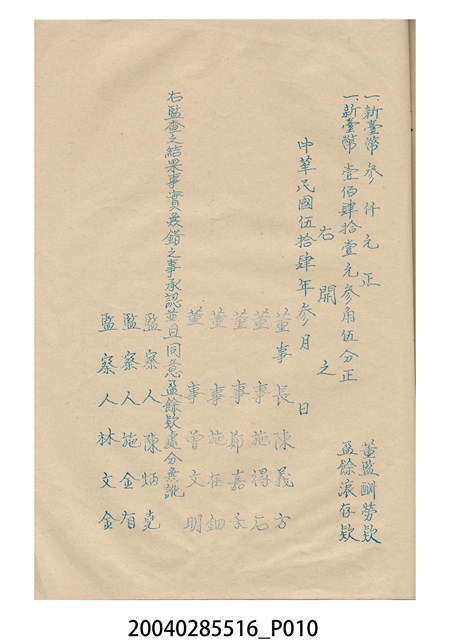 一、新臺幣參仟元正 董監酬勞欵
一、新臺幣壹佰肆拾壹元參角伍分正 盈餘滾存欵
右開之
中華民國伍拾肆年參月 日
董事長陳義方
董事施得石
董事鄭嘉禾
董事施在鈿
董事曾文明
右監查之結果事實無錯之事承認並且同意盈餘欵處分無訛
監察人陳炳堯
監察人施金有
監察人林文金
20040285516_P010